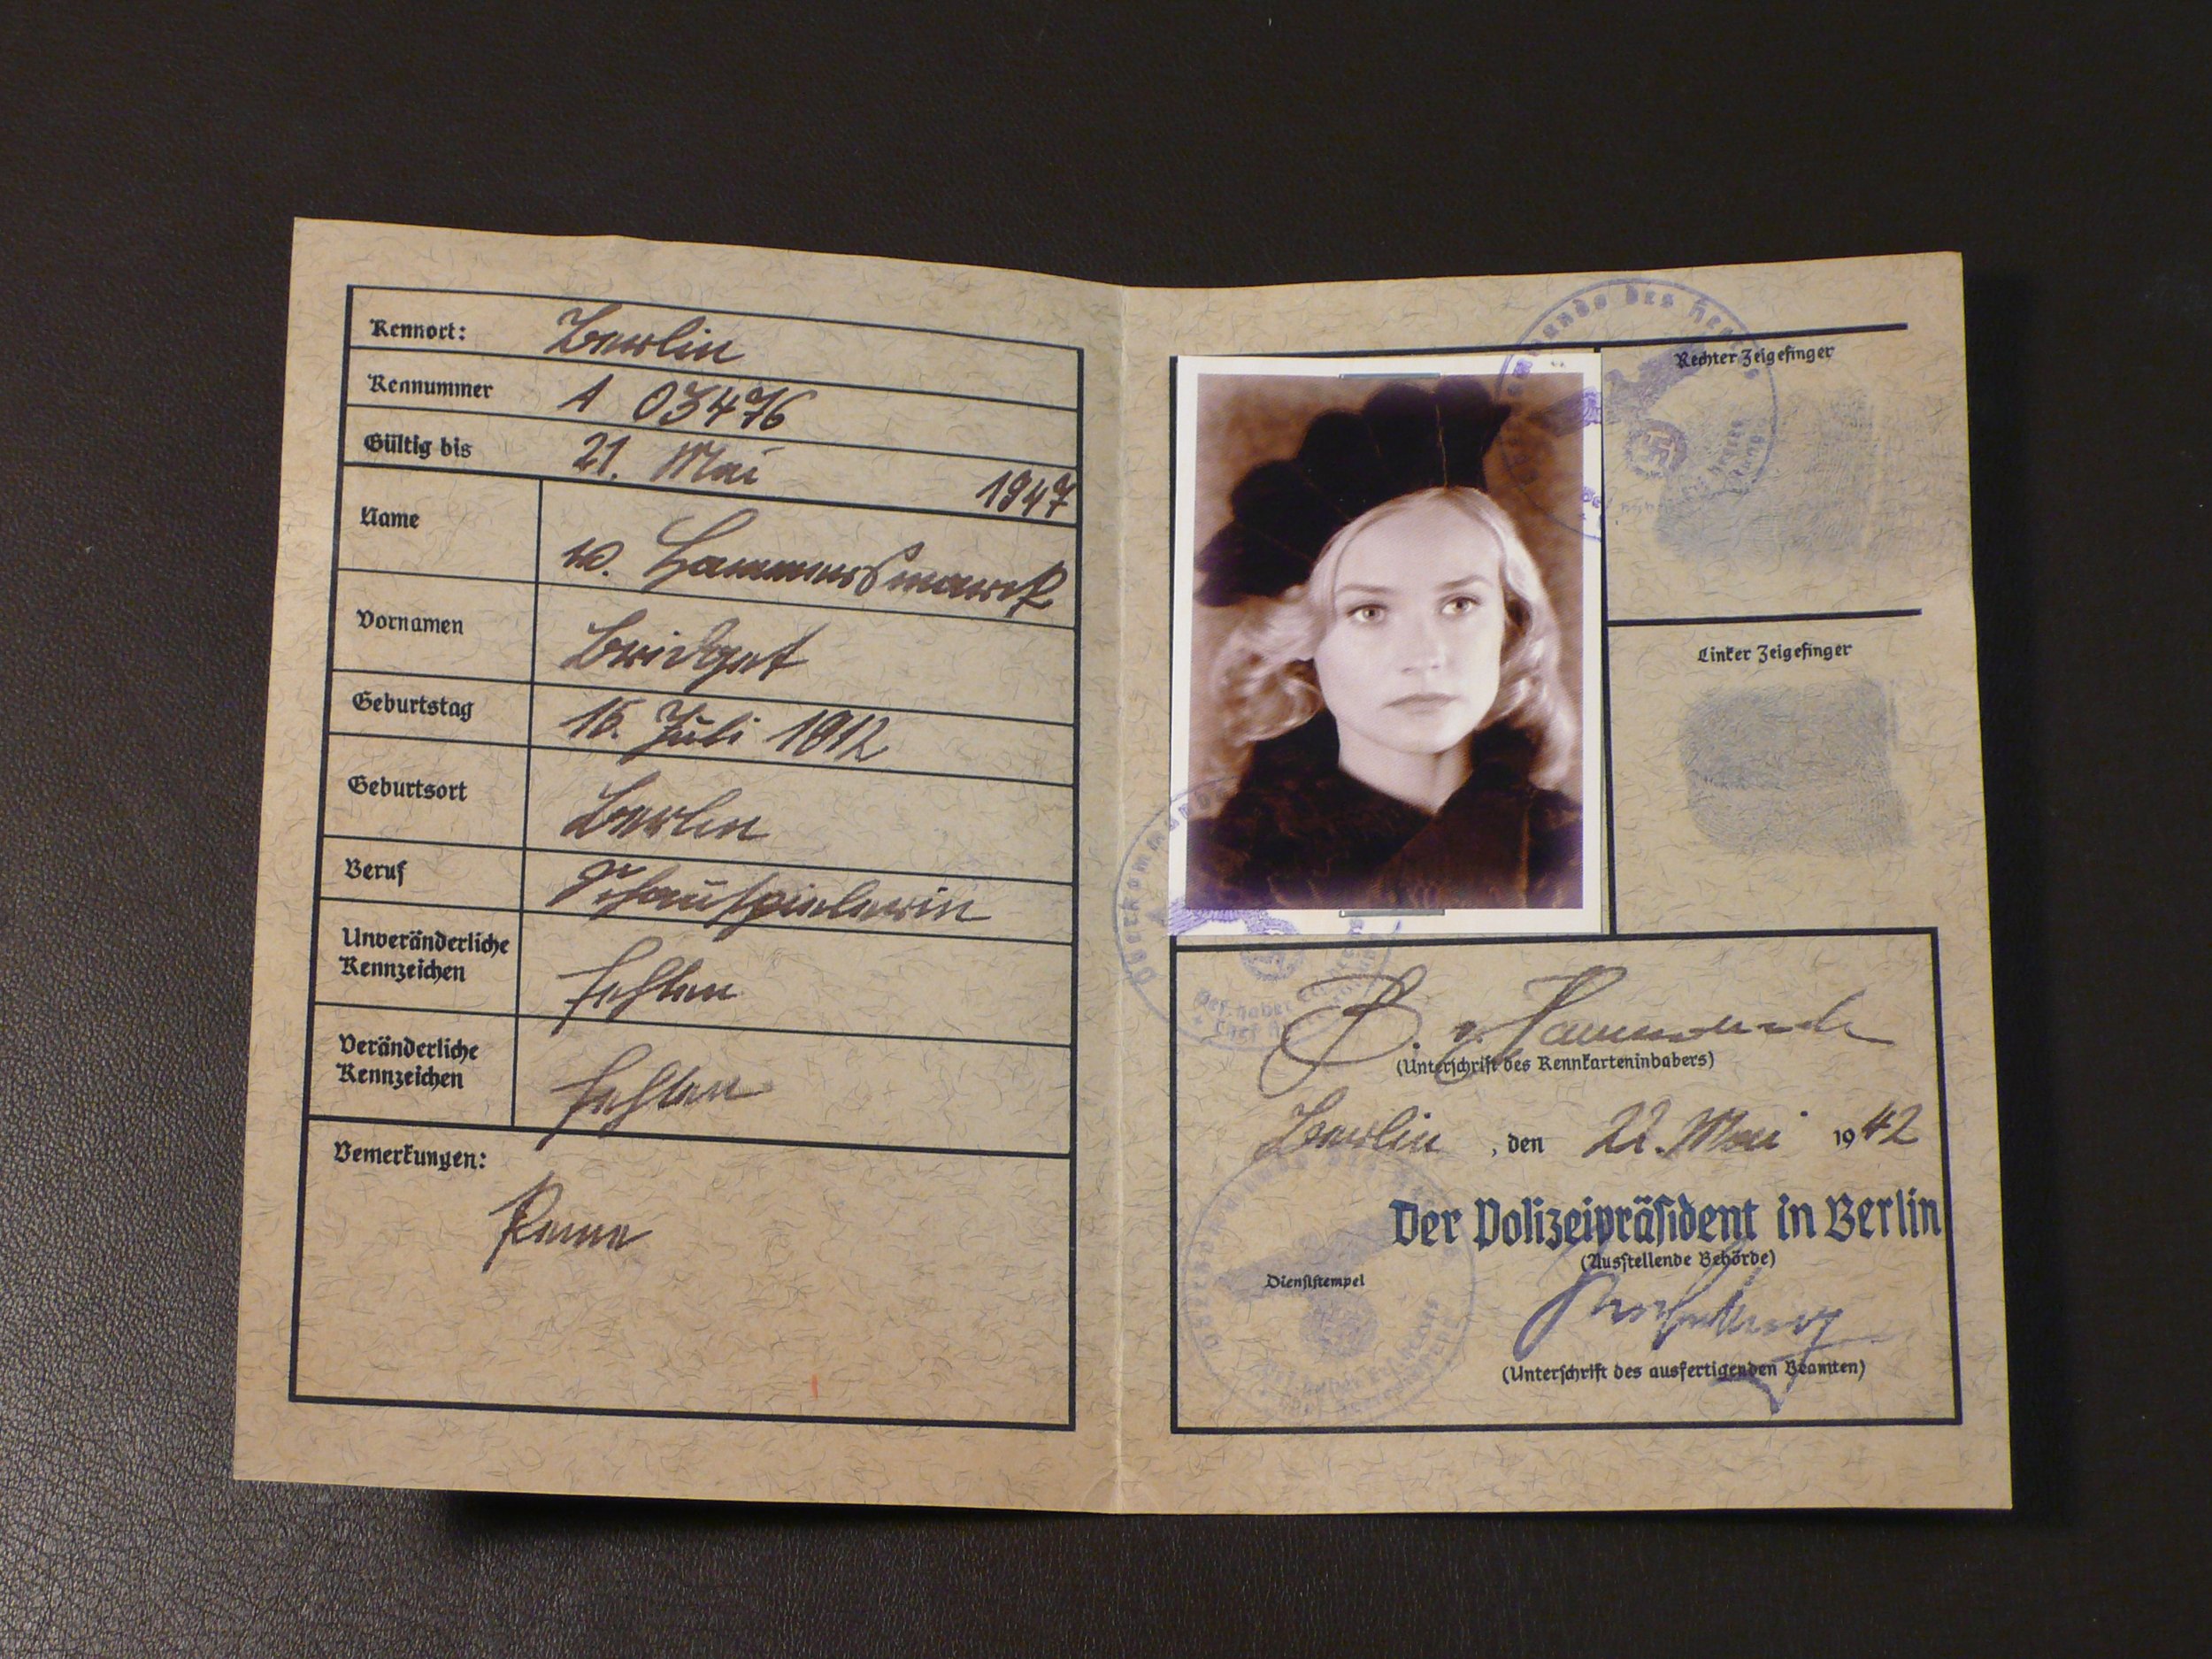 Kennort: Berlin
Kennummer A 03476
Gültig bis 21. Mai 1947
Name v. Hammersmarck
Vornamen Bridget
Geburtstag 15. Juli 1912
Geburtsort Berlin
Beruf Schauspielerin
Unveränderliche
Kennzeichen fehlen
Veränderliche
Kennzeichen fehlen
Bemerkungen:
Keine
Rechter Zeigefinger
Linker Zeigefinger
B. v. Hammersmarck
(Unterschrift des Kennkarteninbabers)
Berlin, den 22. Mai 1942
Der Polizeipräsident in Berlin
(Ausstellende Behörde)
Dienststempel
(Unterschrift des ausfertigenden Beamten)